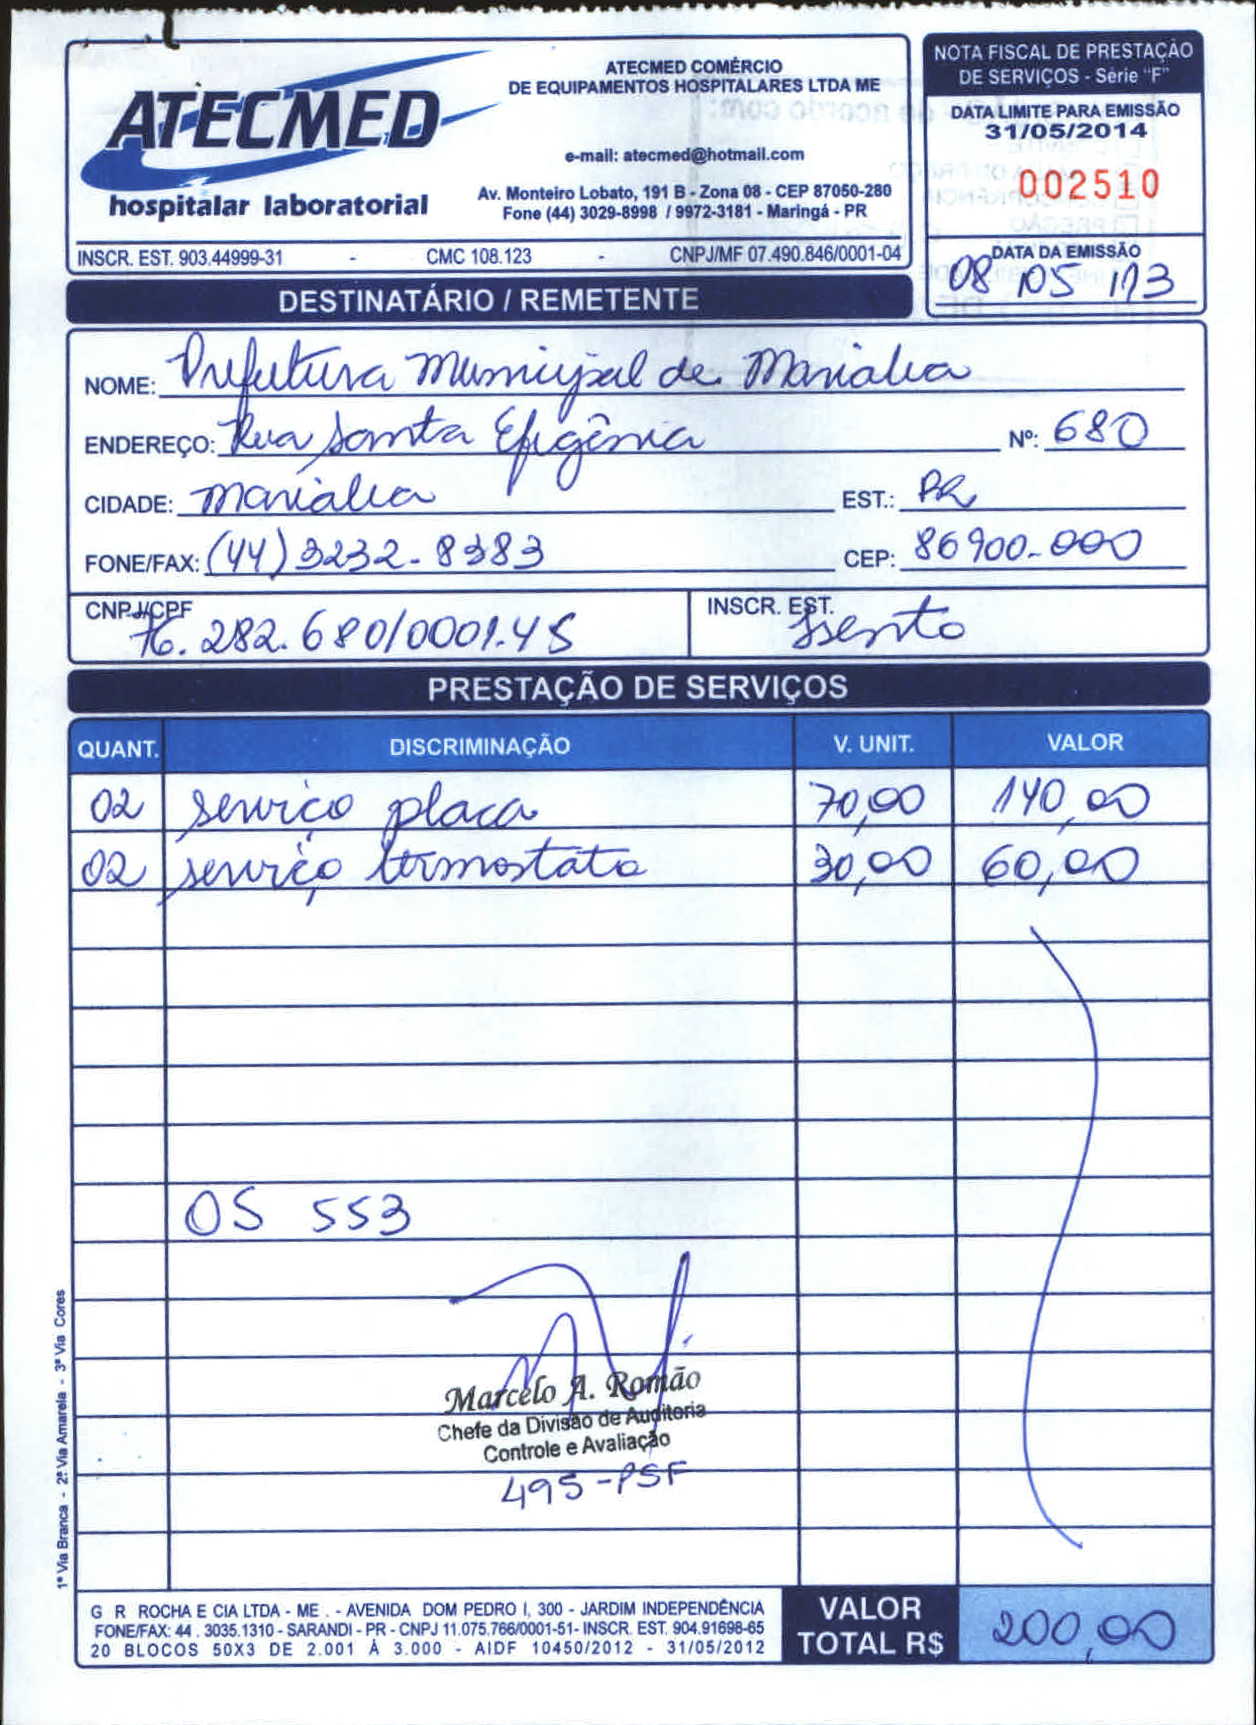 ATECMED
hospitalar laboratorial
ATECMED COMÉRCIO
DE EQUIPAMENTOS HOSPITALARES LTDA ME
e-mail: atecmed@hotmail.com
Av. Monteiro Lobato, 191 B - Zona 08 - CEP 87050-280
Fone (44) 3029-8998 / 9972-3181 - Maringá - PR
INSCR. EST. 903.44999-31 - CMC 108.123 - CNPJ/MF 07.490.846/0001-04
NOTA FISCAL DE PRESTAÇÃO
DE SERVIÇOS - Série "F"
DATA LIMITE PARA EMISSÃO
31/05/2014
002510
DATA DA EMISSÃO
08 05 113
DESTINATÁRIO / REMETENTE
NOME: Prefeitura Municipal de Marialva
ENDEREÇO: Rua Santa Efigênia Nº: 680
CIDADE: Marialva EST.: PR
FONE/FAX: (44) 3232-8383 CEP: 86900-000
CNPJ/CPF 76.282.680/0001.45 INSCR. EST. Isento
PRESTAÇÃO DE SERVIÇOS
QUANT. DISCRIMINAÇÃO V. UNIT. VALOR
02 serviço placa 70,00 140,00
02 serviço termostato 30,00 60,00
OS 553
Marcelo A. Romão
Chefe da Divisão de Auditoria
Controle e Avaliação
495-PSF
1ª Via Branca - 2ª Via Amarela - 3ª Via Cores
G R ROCHA E CIA LTDA - ME . - AVENIDA DOM PEDRO I, 300 - JARDIM INDEPENDÊNCIA
FONE/FAX: 44 . 3035.1310 - SARANDI - PR - CNPJ 11.075.766/0001-51- INSCR. EST. 904.91698-65
20 BLOCOS 50X3 DE 2.001 À 3.000 - AIDF 10450/2012 - 31/05/2012
VALOR
TOTAL R$ 200,00